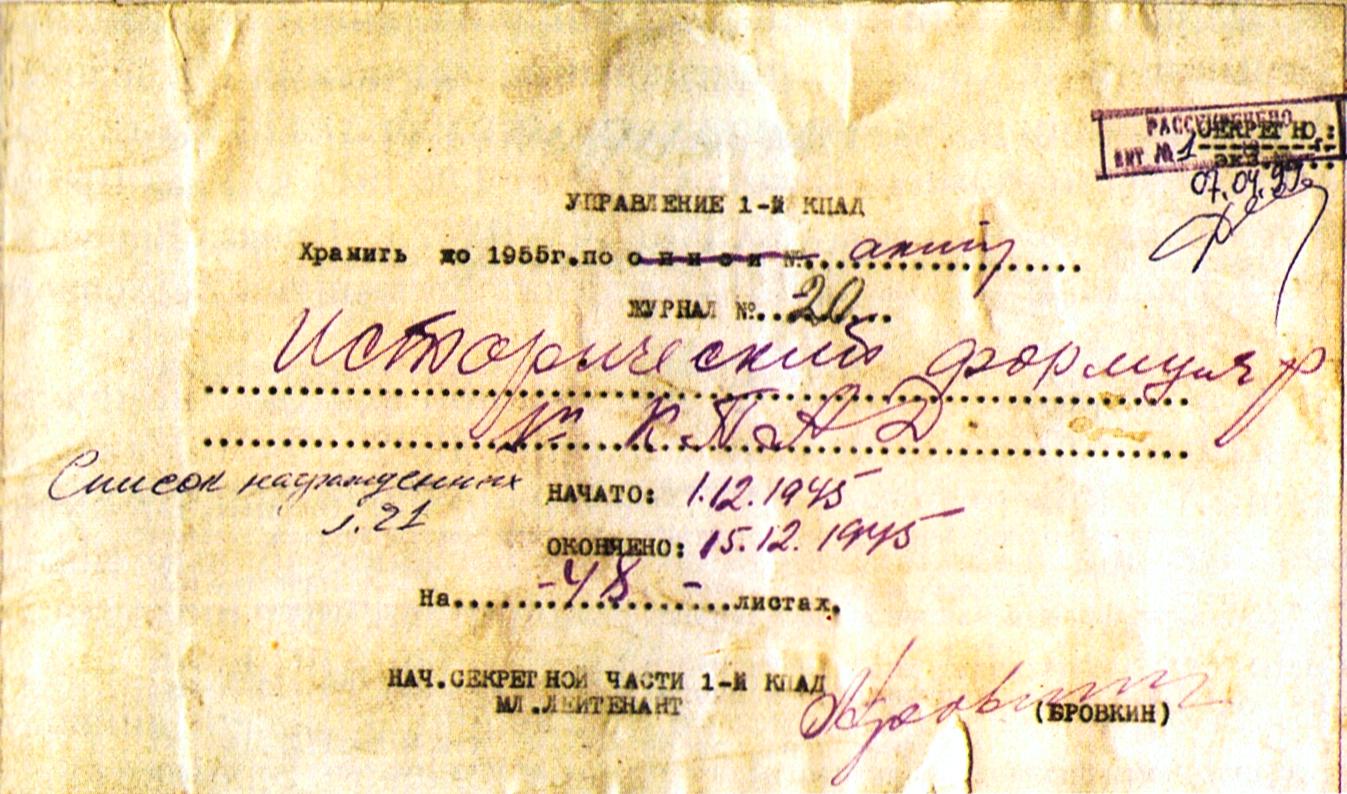 РАССЕКРЕЧЕНО
СЕКРЕТНО:
АКТ № 1
экз.....
07.04.91г.
УПРАВЛЕНИЕ 1-Й КПАД
Хранить до 1955г.по описи №... акту
ЖУРНАЛ №..20...
Исторический формуляр
КПАД
Список награжденных
л.21
НАЧАТО: 1.12.1945
ОКОНЧЕНО: 15.12.1945
На -48- листах.
НАЧ.СЕКРЕТНОЙ ЧАСТИ 1-Й КПАД
МЛ.ЛЕЙТЕНАНТ
(БРОВКИН)